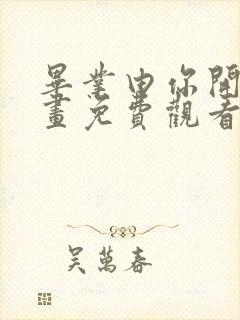 畢業由你開
畫免費觀看
吳萬春